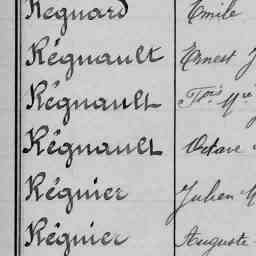 Régnard Emile
Régnault Ernest J
Régnault
Régnault Octave
Régnier Julien M
Régnier Auguste